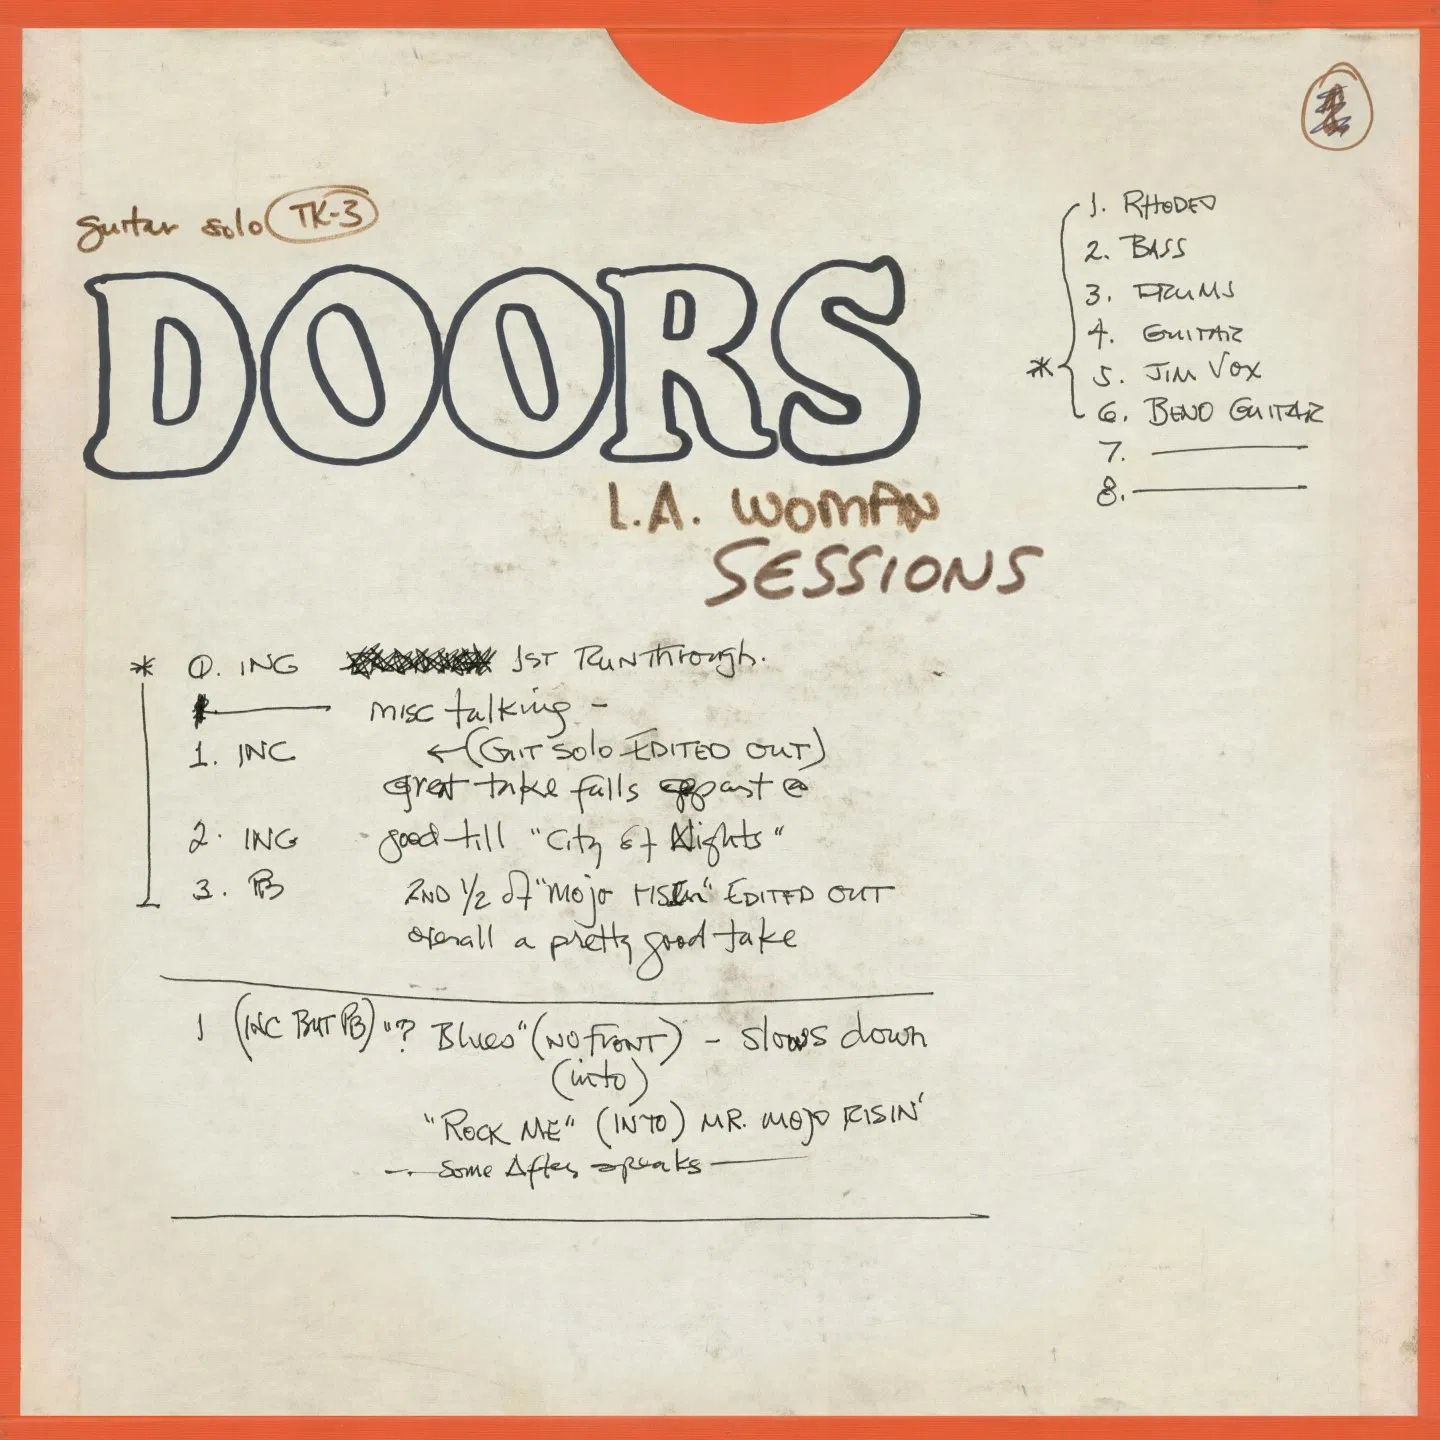 guitar solo TK-3
DOORS
L.A. WOMAN
SESSIONS
1. RHODES
2. BASS
3. DRUMS
4. GUITAR
* 5. JIM VOX
6. BENO GUITAR
7.
8.
* 0. INC 1ST RUNthrough.
misc talking -
1. INC ←(GUIT SOLO EDITED OUT)
great take falls appart @
2. INC good till "City of Nights"
3. PB 2ND 1/2 of "Mojo risin" EDITED OUT
overall a pretty good take
1 (INC BUT PB) "? Blues" (NO FRONT) - slows down
(into)
"ROCK ME" (INTO) MR. MOJO RISIN'
- some After speaks -